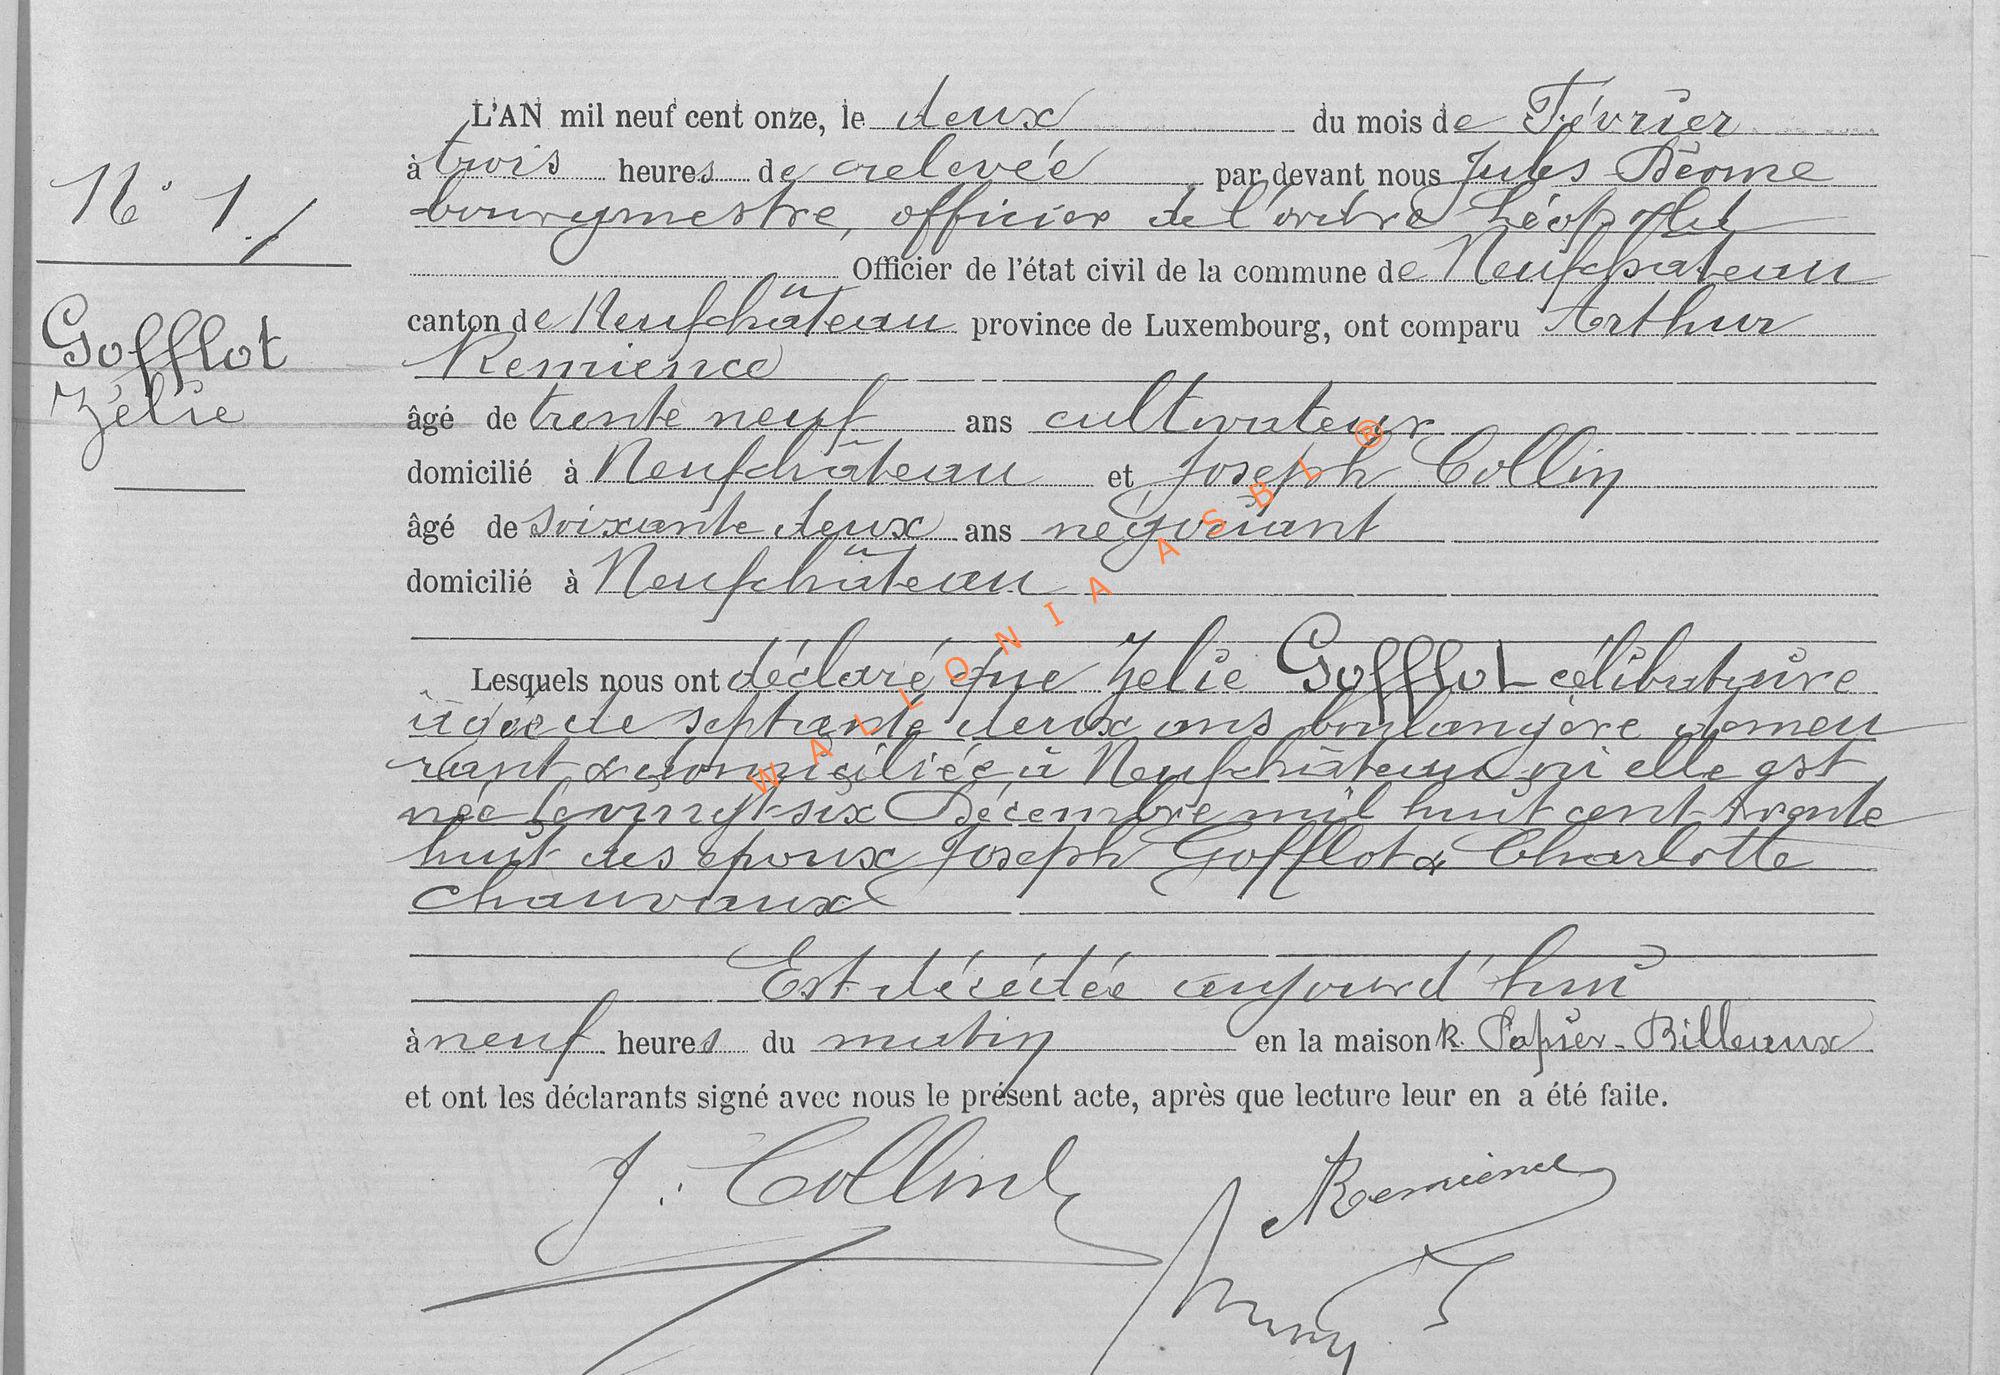 N° 1
Gofflot
Zélie
L'AN mil neuf cent onze, le deux du mois de Février
à trois heures de relevée par devant nous Jules
bourgmestre, officier de l'ordre Léopold
Officier de l'état civil de la commune de Neufchâteau
canton de Neufchâteau province de Luxembourg, ont comparu Arthur
Remience
âgé de trente neuf ans cultivateur
domicilié à Neufchâteau et Joseph Collin
âgé de soixante deux ans négociant
domicilié à Neufchâteau
Lesquels nous ont déclaré que Zélie Gofflot célibataire
âgée de septante deux ans boulangère demeu
rant & domiciliée à Neufchâteau où elle est
née le vingt-six Décembre mil huit cent trente
huit des époux Joseph Gofflot & Charlotte
Chauvaux
Est décédée aujourd'hui
à neuf heures du matin en la maison R. Papier-Billeaux
et ont les déclarants signé avec nous le présent acte, après que lecture leur en a été faite.
J. Collin
Remience
WALLONIA ASBL ®